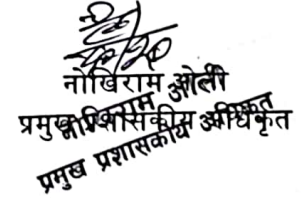 नोखिराम ओली
प्रमुख प्रशासकीय अधिकृत
नोखिराम ओली
प्रमुख प्रशासकीय अधिकृत